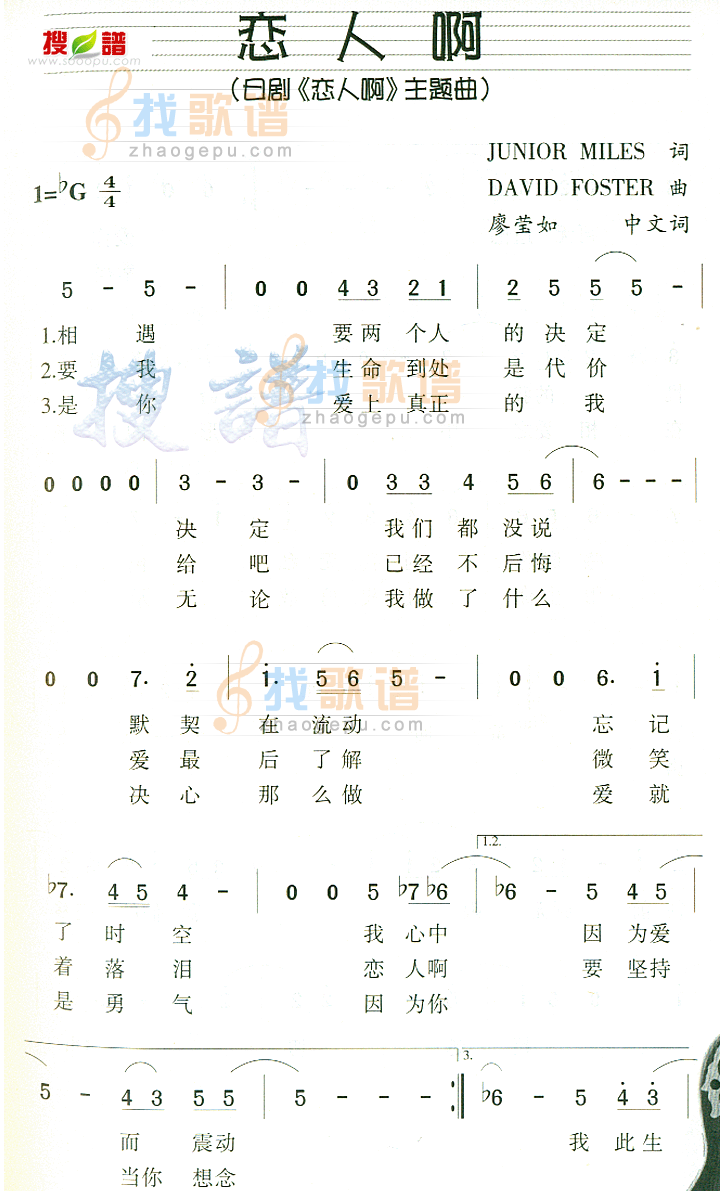 恋人啊
搜谱
www.sooopu.com
（日剧《恋人啊》主题曲）
找歌谱
zhaogepu.com
JUNIOR MILES 词
1=♭G 4/4
DAVID FOSTER 曲
廖莹如 中文词
5 - 5 - | 0 0 4 3 2 1 | 2 5 5 5 - |
1.相 遇 要两 个人 的 决 定
2.要 我 生命 到处 是 代 价
3.是 你 爱上 真正 的 我
搜 谱
找歌谱
zhaogepu.com
0 0 0 0 | 3 - 3 - | 0 3 3 4 5 6 | 6 - - - |
决 定 我们 都 没说
给 吧 已经 不 后悔
无 论 我做 了 什么
0 0 7· 2̇ | 1̇· 5 6 5 - | 0 0 6· 1̇ |
找歌谱
zhaogepu.com
默 契 在 流动 忘 记
爱 最 后 了解 微 笑
决 心 那 么做 爱 就
1.2.
♭7· 4 5 4 - | 0 0 5 ♭7 ♭6 | ♭6 - 5 4 5 |
找歌谱
zhaogepu.com
了 时 空 我 心中 因 为爱
着 落 泪 恋 人啊 要 坚持
是 勇 气 因 为你
3.
5 - 4 3 5 5 | 5 - - - :| ♭6 - 5 4̇ 3̇ |
找歌谱
zhaogepu.com
而 震动 我 此生
当你 想念